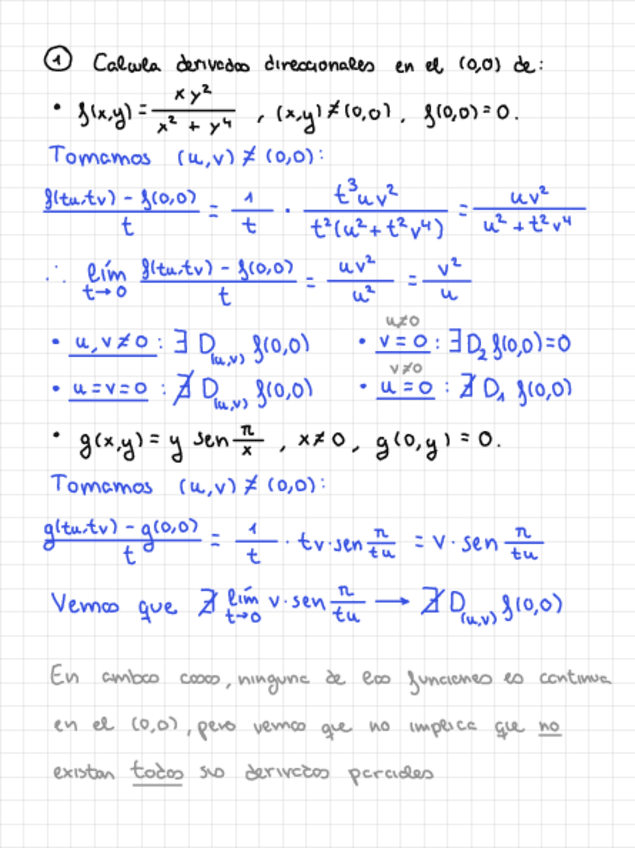 ① Calcula derivadas direccionales en el (0,0) de:
• f(x,y) = xy² / (x² + y⁴) , (x,y) ≠ (0,0), f(0,0) = 0.
Tomamos (u,v) ≠ (0,0):
(f(tu,tv) - f(0,0)) / t = 1/t · t³uv² / (t²(u² + t²v⁴)) = uv² / (u² + t²v⁴)
∴ lím t→0 (f(tu,tv) - f(0,0)) / t = uv² / u² = v² / u
• u, v ≠ 0 : ∃ D(u,v) f(0,0) • u≠0 v = 0 : ∃ D₂ f(0,0) = 0
• u = v = 0 : ∄ D(u,v) f(0,0) • v≠0 u = 0 : ∄ D₁ f(0,0)
• g(x,y) = y sen π/x , x ≠ 0, g(0,y) = 0.
Tomamos (u,v) ≠ (0,0):
(g(tu,tv) - g(0,0)) / t = 1/t · tv · sen π/tu = v · sen π/tu
Vemos que ∄ lím t→0 v · sen π/tu → ∄ D(u,v) f(0,0)
En ambos casos, ninguna de las funciones es continua
en el (0,0), pero vemos que no implica que no
existan todas sus derivadas parciales